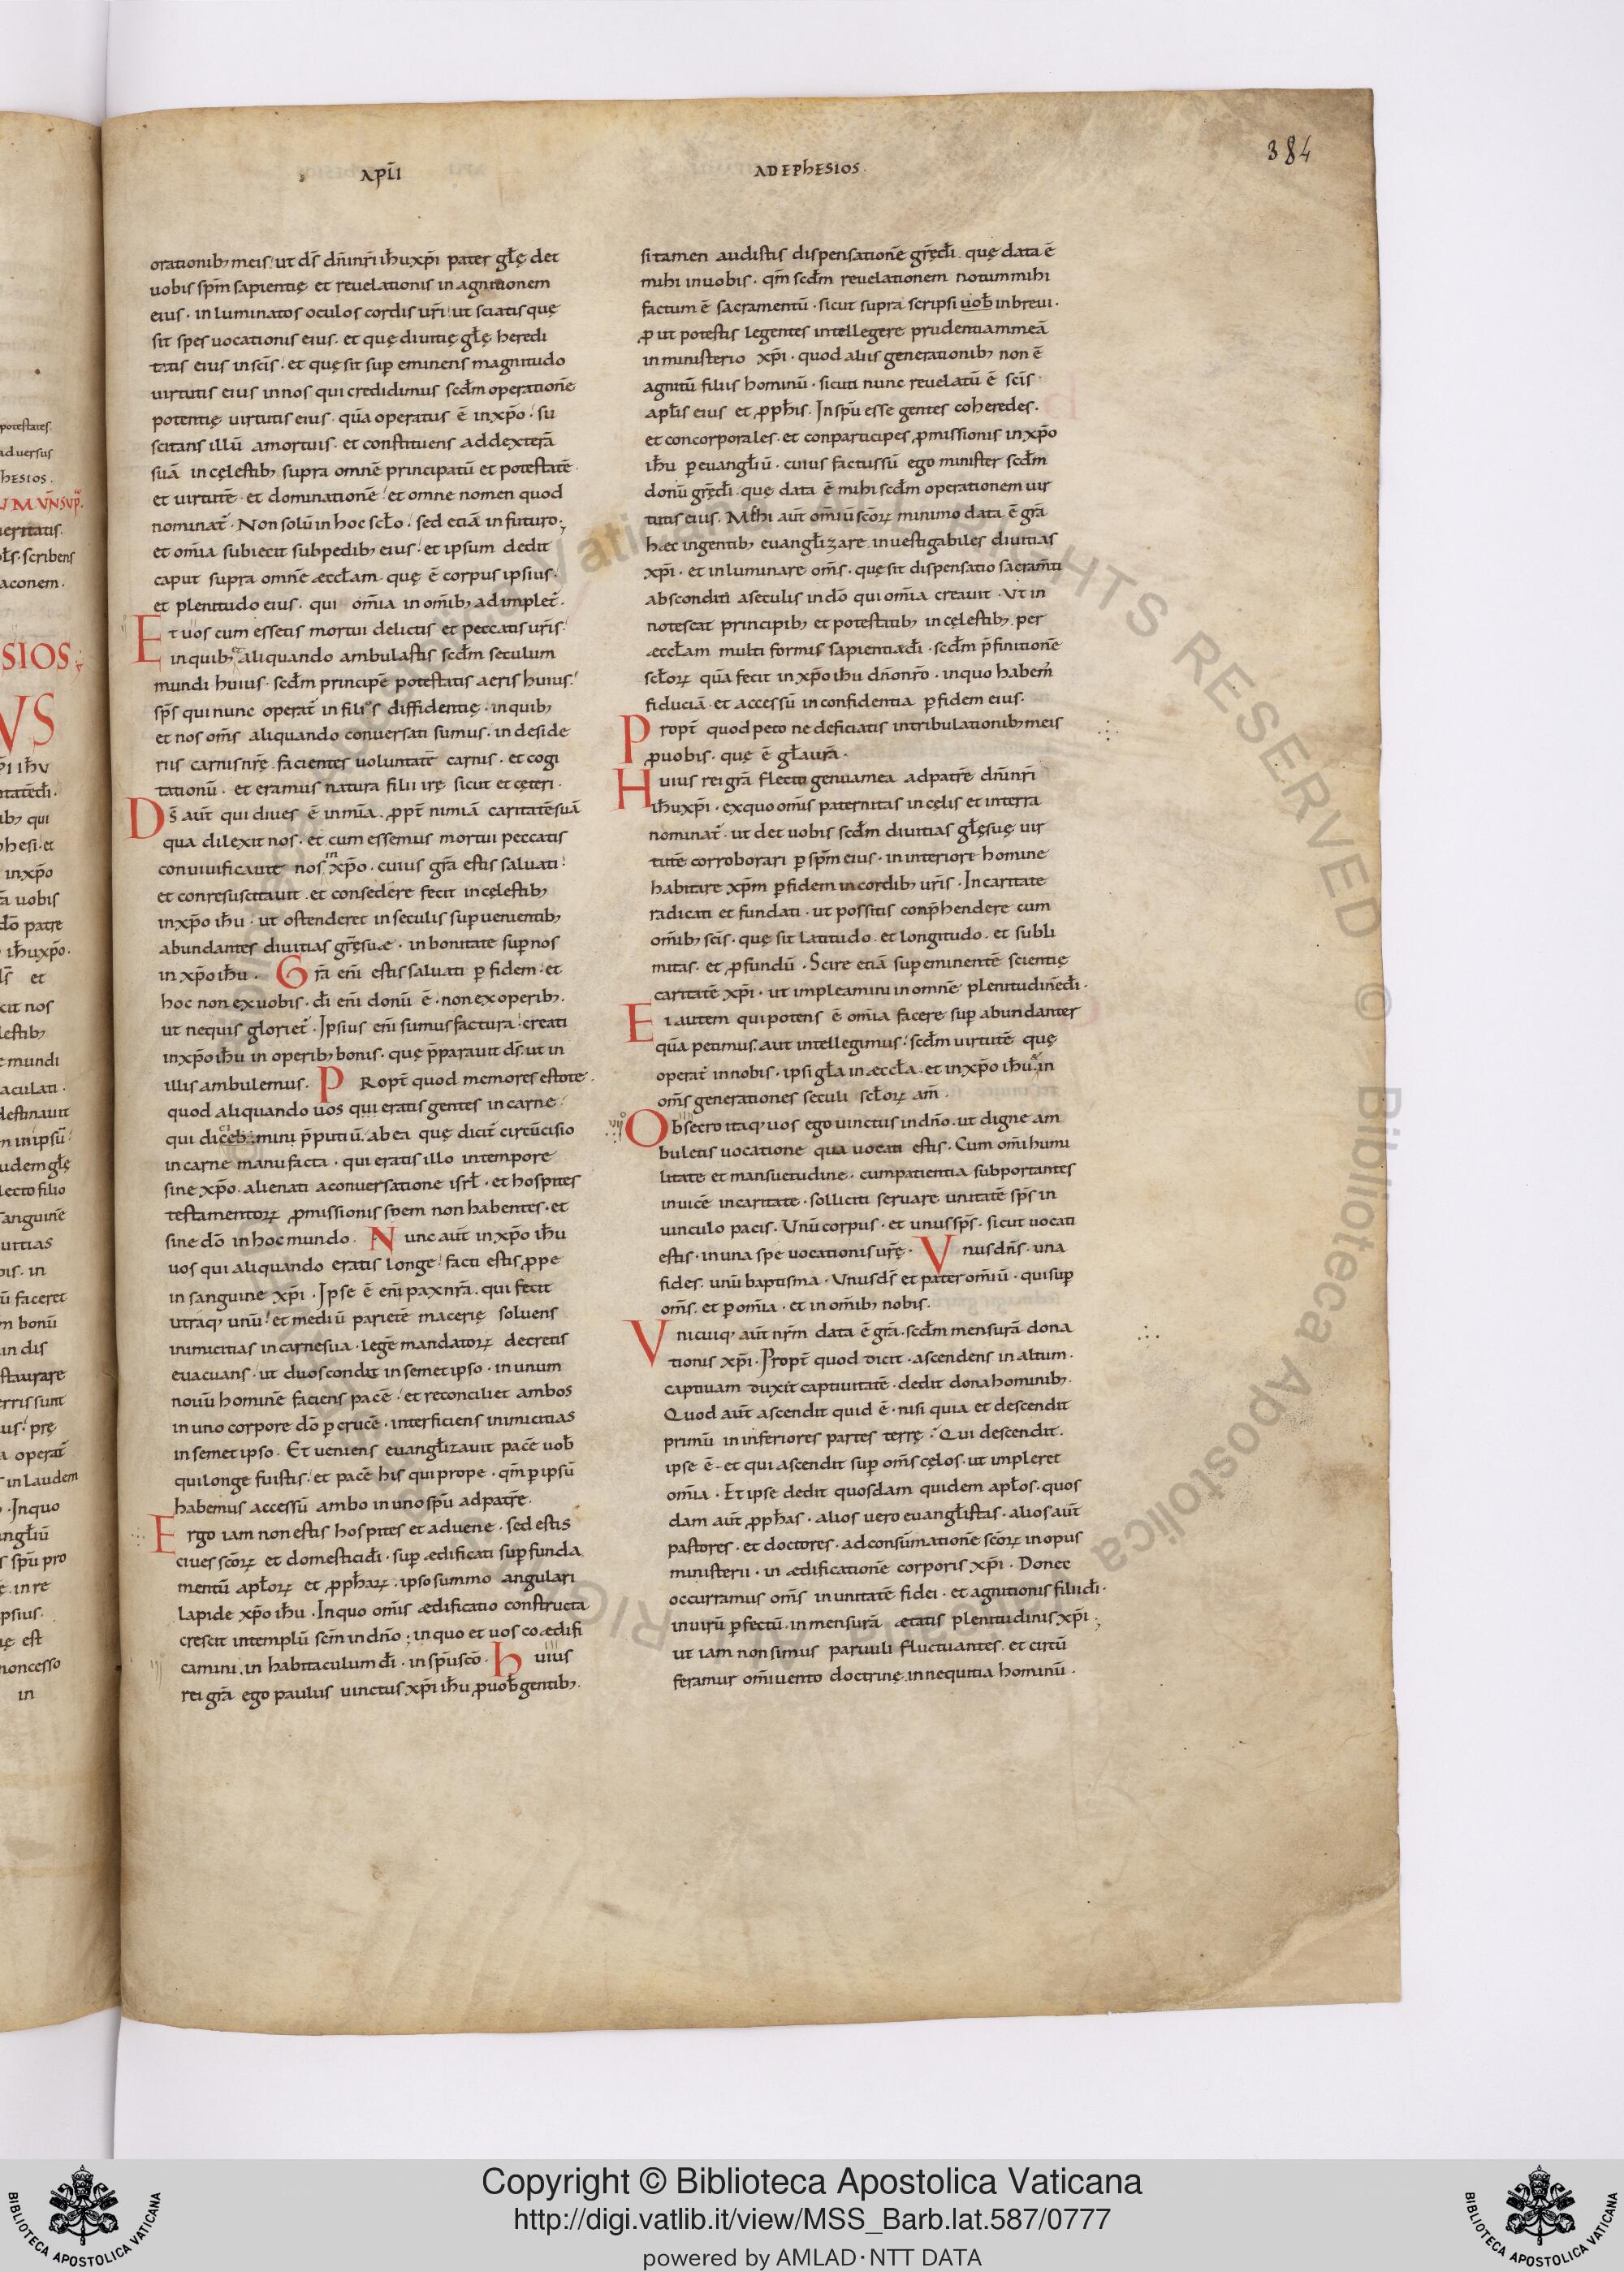 APL̄I
AD EPHESIOS.
384
orationib; meis. ut d̄s dn̄i nr̄i ih̄u xp̄i pater gl̄ę det
uobis sp̄m sapientię et reuelationis in agnitionem
eius. in luminatos oculos cordis ur̄i. ut sciatis quę
sit spes uocationis eius. et quę diuitię gl̄ę heredi
tatis eius in sc̄is. et quę sit sup eminens magnitudo
uirtutis eius in nos qui credidimus scd̄m operationē
potentię uirtutis eius. quā operatus ē in xp̄o. su
scitans illū a mortuis. et constituens ad dexterā
suā in cęlestib; supra omnē principatū et potestatē.
et uirtutē. et dominationē. et omne nomen quod
nominat̄. Non solū in hoc scl̄o. sed etiā in futuro;
et om̄ia subiecit sub pedib; eius. et ipsum dedit
caput supra omnē æccl̄am. quę ē corpus ipsius.
et plenitudo eius. qui om̄ia in om̄ib; ad implet̄.
Et uos cum essetis mortui delictis et peccatis ur̄is.
in quib; & aliquando ambulastis scd̄m seculum
mundi huius. scd̄m principē potestatis aeris huius.
sp̄s qui nunc operat̄ in filios diffidentię. in quib;
et nos om̄s aliquando conuersati sumus. in deside
riis carnis nr̄ę. facientes uoluntatē carnis. et cogi
tationū. et eramus natura filii irę sicut et cęteri.
Ds̄ aut̄ qui diues ē in mīa. ꝓpt̄ nimiā caritatē suā
qua dilexit nos. et cum essemus mortui peccatis
conuiuificauit nos in xp̄o. cuius gr̄a estis saluati.
et conresuscitauit. et consedere fecit in cęlestib;
in xp̄o ih̄u. ut ostenderet in seculis sup uenientib;
abundantes diuitias gr̄ę suæ. in bonitate sup nos
in xp̄o ih̄u. Gr̄a eni̅ estis saluati ꝑ fidem. et
hoc non ex uobis. dī eni̅ donū ē. non ex operib;.
ut nequis gloriet̄. Ipsius eni̅ sumus factura. creati
in xp̄o ih̄u in operib; bonis. quę p̄parauit ds̄. ut in
illis ambulemus. PRopt̄ quod memores estote.
quod aliquando uos qui eratis gentes in carne.
qui dicebamini p̄putiū. ab ea quę dicit̄ circūcisio
in carne manu facta. qui eratis illo in tempore
sine xp̄o. alienati a conuersatione isrł. et hospites
testamentoꝝ ꝓmissionis spem non habentes. et
sine dō in hoc mundo. Nunc aut̄ in xp̄o ih̄u
uos qui aliquando eratis longe. facti estis ꝓpe
in sanguine xp̄i. Ipse ē eni̅ pax nr̄a. qui fecit
utraq; unū. et mediū parietē macerię soluens
inimicitias in carne sua. legē mandatoꝝ decretis
euacuans. ut duos condat in semet ipso. in unum
nouū hominē faciens pacē. et reconciliet ambos
in uno corpore dō ꝑ crucē. interficiens inimicitias
in semet ipso. Et ueniens euangl̄izauit pacē uob̄
qui longe fuistis. et pacē his qui prope. qm̄ ꝑ ipsū
habemus accessū ambo in uno spū ad patrē.
Ergo iam non estis hospites et aduene. sed estis
ciues sc̄oꝝ et domestici dī. sup ædificati sup funda
mentū apl̄oꝝ et ꝓph̄arꝝ. ipso summo angulari
lapide xp̄o ih̄u. In quo om̄is ædificatio constructa
crescit in templū sc̄m in dn̄o; in quo et uos co ædifi
camini. in habitaculum dī. in spū sc̄o. huius
rei gr̄a ego paulus uinctus xp̄i ih̄u ꝓ uob̄ gentib;.
si tamen audistis dispensationē gr̄ę dī. quę data ē
mihi in uobis. qm̄ scd̄m reuelationem notum mihi
factum ē sacramentū. sicut supra scripsi uob̄ in breui.
ꝓ ut potestis legentes intellegere prudentiam meā
in ministerio xp̄i. quod aliis generationib; non ē
agnitū filiis hominū. sicuti nunc reuelatū ē sc̄is
apl̄is eius et ꝓph̄is. In spū esse gentes coheredes.
et concorporales. et conparticipes ꝓmissionis in xp̄o
ih̄u ꝑ euangl̄iū. cuius factus sū ego minister scd̄m
donū gr̄ę dī. quę data ē mihi scd̄m operationem uir
tutis eius. Mihi aut̄ omiū sc̄oꝝ minimo data ē gr̄a
hæc in gentib; euangl̄izare. inuestigabiles diuitias
xp̄i. et in luminare om̄s. quę sit dispensatio sacram̄ti
absconditi a seculis in dō qui om̄ia creauit. Ut in
notescat principib; et potestatib; in cęlestib; per
æccl̄am multi formis sapientia dī. scd̄m p̄finitionē
scl̄oꝝ quā fecit in xp̄o ih̄u dn̄o nr̄o. in quo habem̄
fiduciā. et accessū in confidentia ꝑ fidem eius.
Propt̄ quod peto ne deficiatis in tribulationib; meis
ꝓ uobis. quę ē gl̄a ur̄a.
Huius rei gr̄a flecto genua mea ad patrē dn̄i nr̄i
ih̄u xp̄i. ex quo om̄is paternitas in cęlis et in terra
nominat̄. ut det uobis scd̄m diuitias gl̄ę suę uir
tutē corroborari ꝑ sp̄m eius. in interiore homine
habitare xp̄m ꝑ fidem in cordib; ur̄is. In caritate
radicati et fundati. ut possitis conp̄hendere cum
om̄ib; sc̄is. quę sit latitudo. et longitudo. et subli
mitas. et ꝓfundū. Scire etiā sup eminentē scientię
caritatē xp̄i. ut impleamini in omnē plenitudinē dī.
Ei autem qui potens ē om̄ia facere sup abundanter
quā petimus. aut intellegimus. scd̄m uirtutē quę
operat̄ in nobis. ipsi gl̄a in æccl̄a. et in xp̄o ih̄u. & in
om̄s generationes seculi scl̄oꝝ am̄.
Obsecro itaq; uos ego uinctus in dn̄o. ut digne am
buletis uocatione qua uocati estis. Cum om̄i humi
litate et mansuetudine. cum patientia subportantes
inuicē in caritate. solliciti seruare unitatē sp̄s in
uinculo pacis. Unū corpus. et unus sp̄s. sicut uocati
estis. in una spe uocationis ur̄ę. Vnus dn̄s. una
fides. unū baptisma. Unus ds̄ et pater omiū. qui sup
om̄s. et ꝑ om̄ia. et in om̄ib; nobis.
Vnicuiq; aut̄ nr̄m data ē gr̄a. scd̄m mensurā dona
tionis xp̄i. Propt̄ quod dicit. ascendens in altum.
captiuam duxit captiuitatē. dedit dona hominib;.
Quod aut̄ ascendit quid ē. nisi quia et descendit
primū in inferiores partes terrę. Qui descendit.
ipse ē. et qui ascendit sup om̄s cęlos. ut impleret
om̄ia. Et ipse dedit quosdam quidem apl̄os. quos
dam aut̄ ꝓph̄as. alios uero euangl̄istas. alios aut̄
pastores. et doctores. ad consūmationē sc̄oꝝ in opus
ministerii. in ædificationē corporis xp̄i. Donec
occurramus om̄s in unitatē fidei. et agnitionis filii dī.
in uirū ꝑfectū. in mensurā ætatis plenitudinis xp̄i;
ut iam non simus paruuli fluctuantes. et circū
feramur om̄i uento doctrinę. in nequitia hominū.
Copyright © Biblioteca Apostolica Vaticana
http://digi.vatlib.it/view/MSS_Barb.lat.587/0777
powered by AMLAD·NTT DATA
BIBLIOTECA APOSTOLICA VATICANA
BIBLIOTECA APOSTOLICA VATICANA